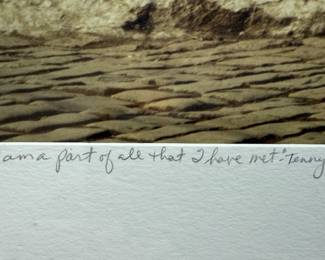 am a part of all that I have met"-Tenny